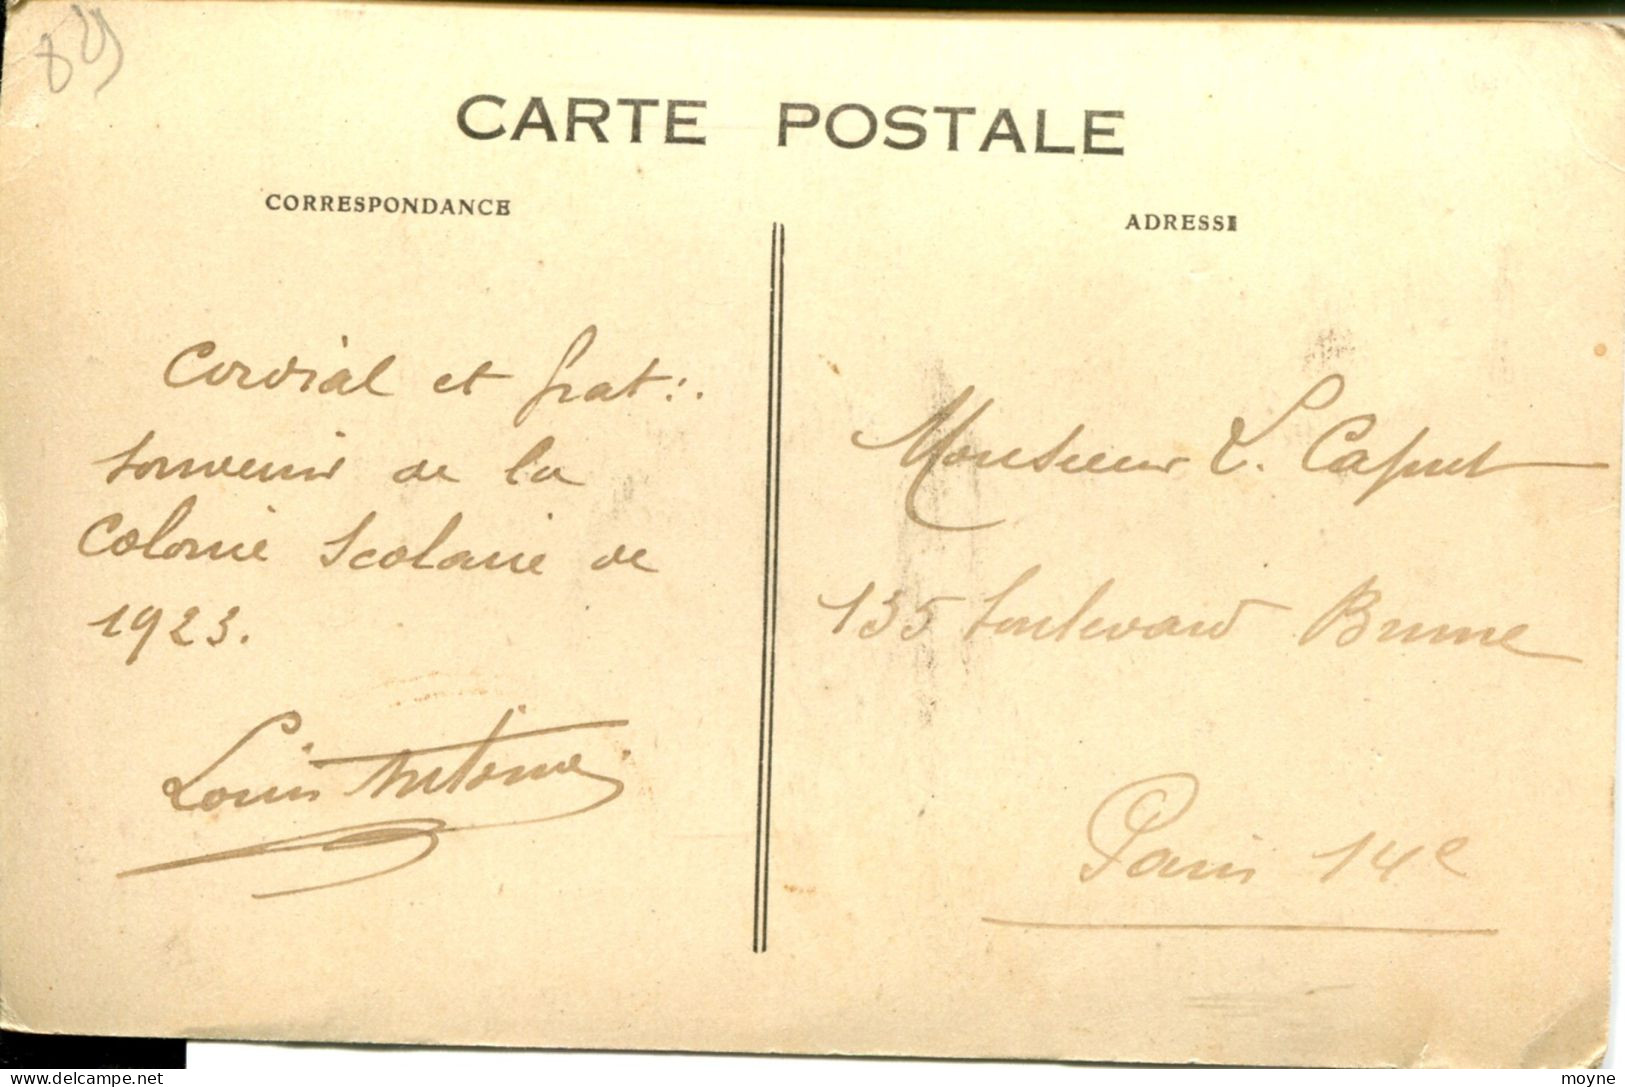 89
CARTE POSTALE
CORRESPONDANCE
ADRESSE
Cordial et frat∴
souvenir de la
Colonie Scolaire de
1923.
Louis Antoine
Monsieur L. Caput
135 boulevard Brune
Paris 14e
moyne